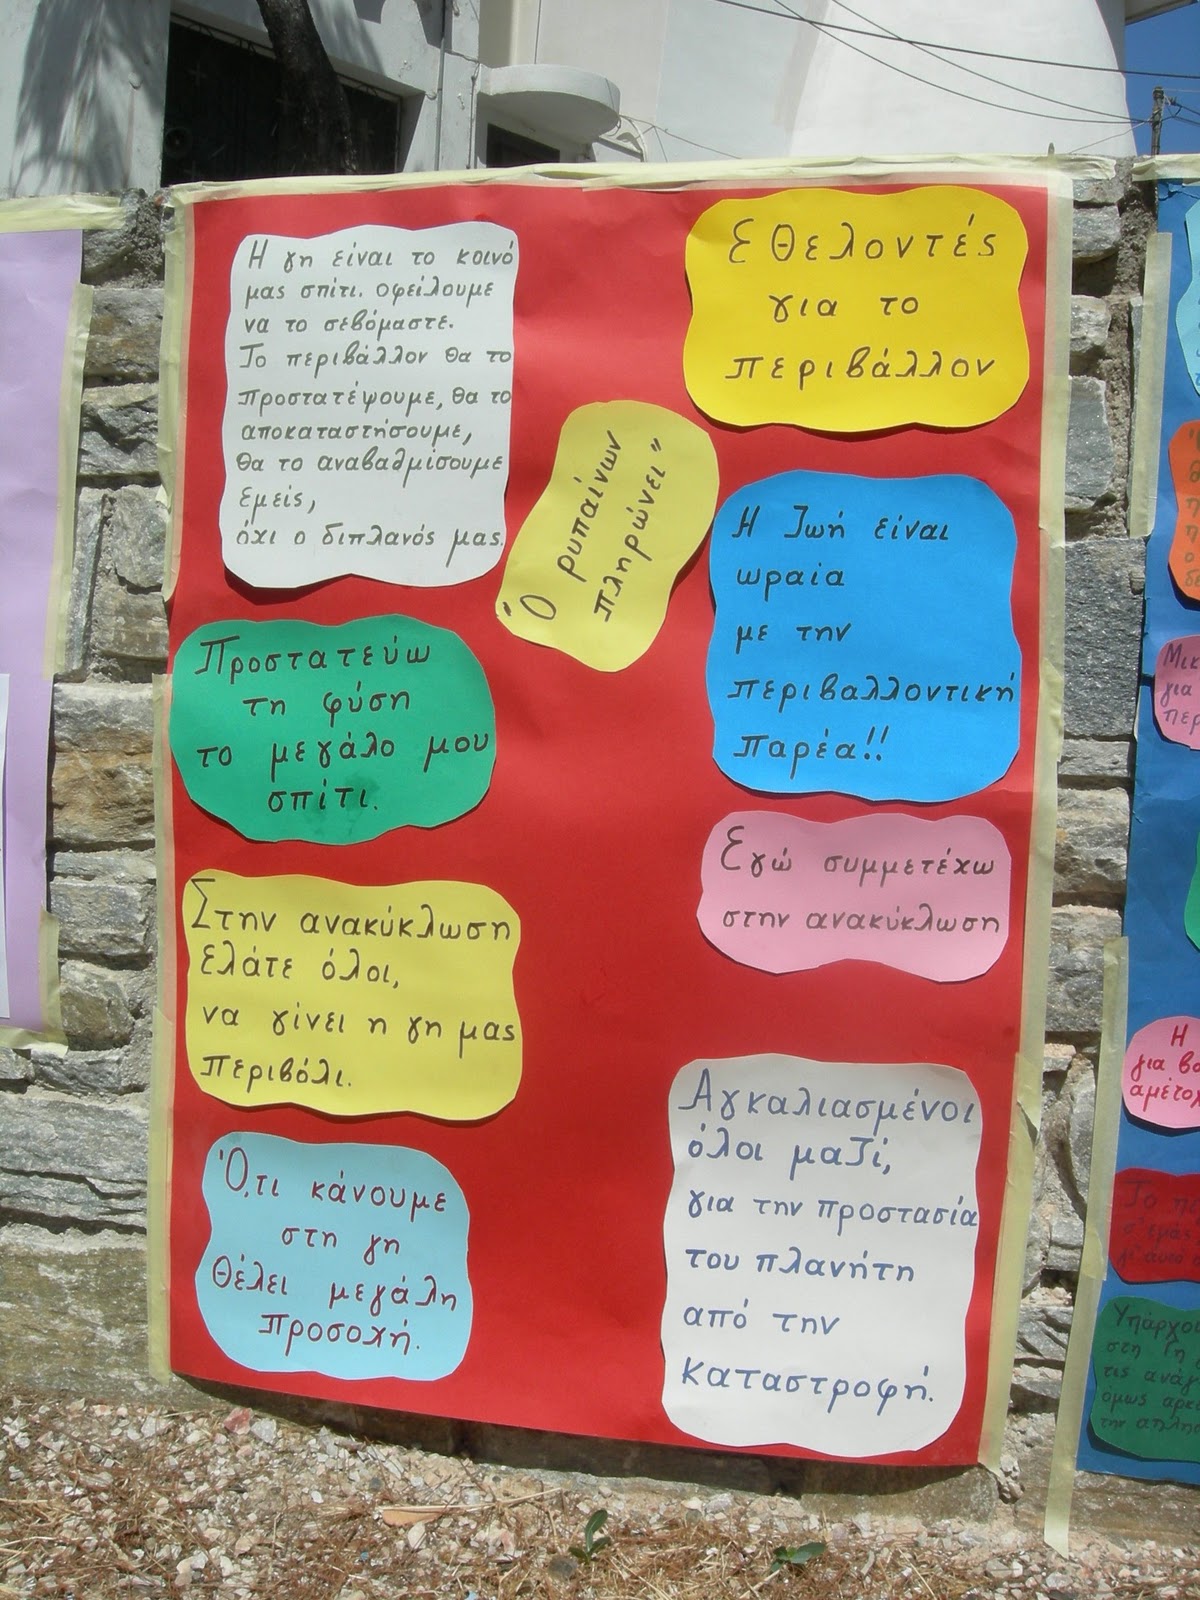 Η γη είναι το κοινό
μας σπίτι. οφείλουμε
να το σεβόμαστε.
Το περιβάλλον θα το
προστατέψουμε, θα το
αποκαταστήσουμε,
θα το αναβαθμίσουμε
εμείς,
όχι ο διπλανός μας.
Εθελοντές
για το
περιβάλλον
"Ο ρυπαίνων
πληρώνει"
Η Ζωή είναι
ωραία
με την
περιβαλλοντική
παρέα!!
Προστατεύω
τη φύση
το μεγάλο μου
σπίτι.
Εγώ συμμετέχω
στην ανακύκλωση
Στην ανακύκλωση
ελάτε όλοι,
να γίνει η γη μας
περιβόλι.
Αγκαλιασμένοι
όλοι μαζί,
για την προστασία
του πλανήτη
από την
καταστροφή.
Ό,τι κάνουμε
στη γη
θέλει μεγάλη
προσοχή.
Η
για
Το
Υπάρχου
στη γη
τις
όμως
την